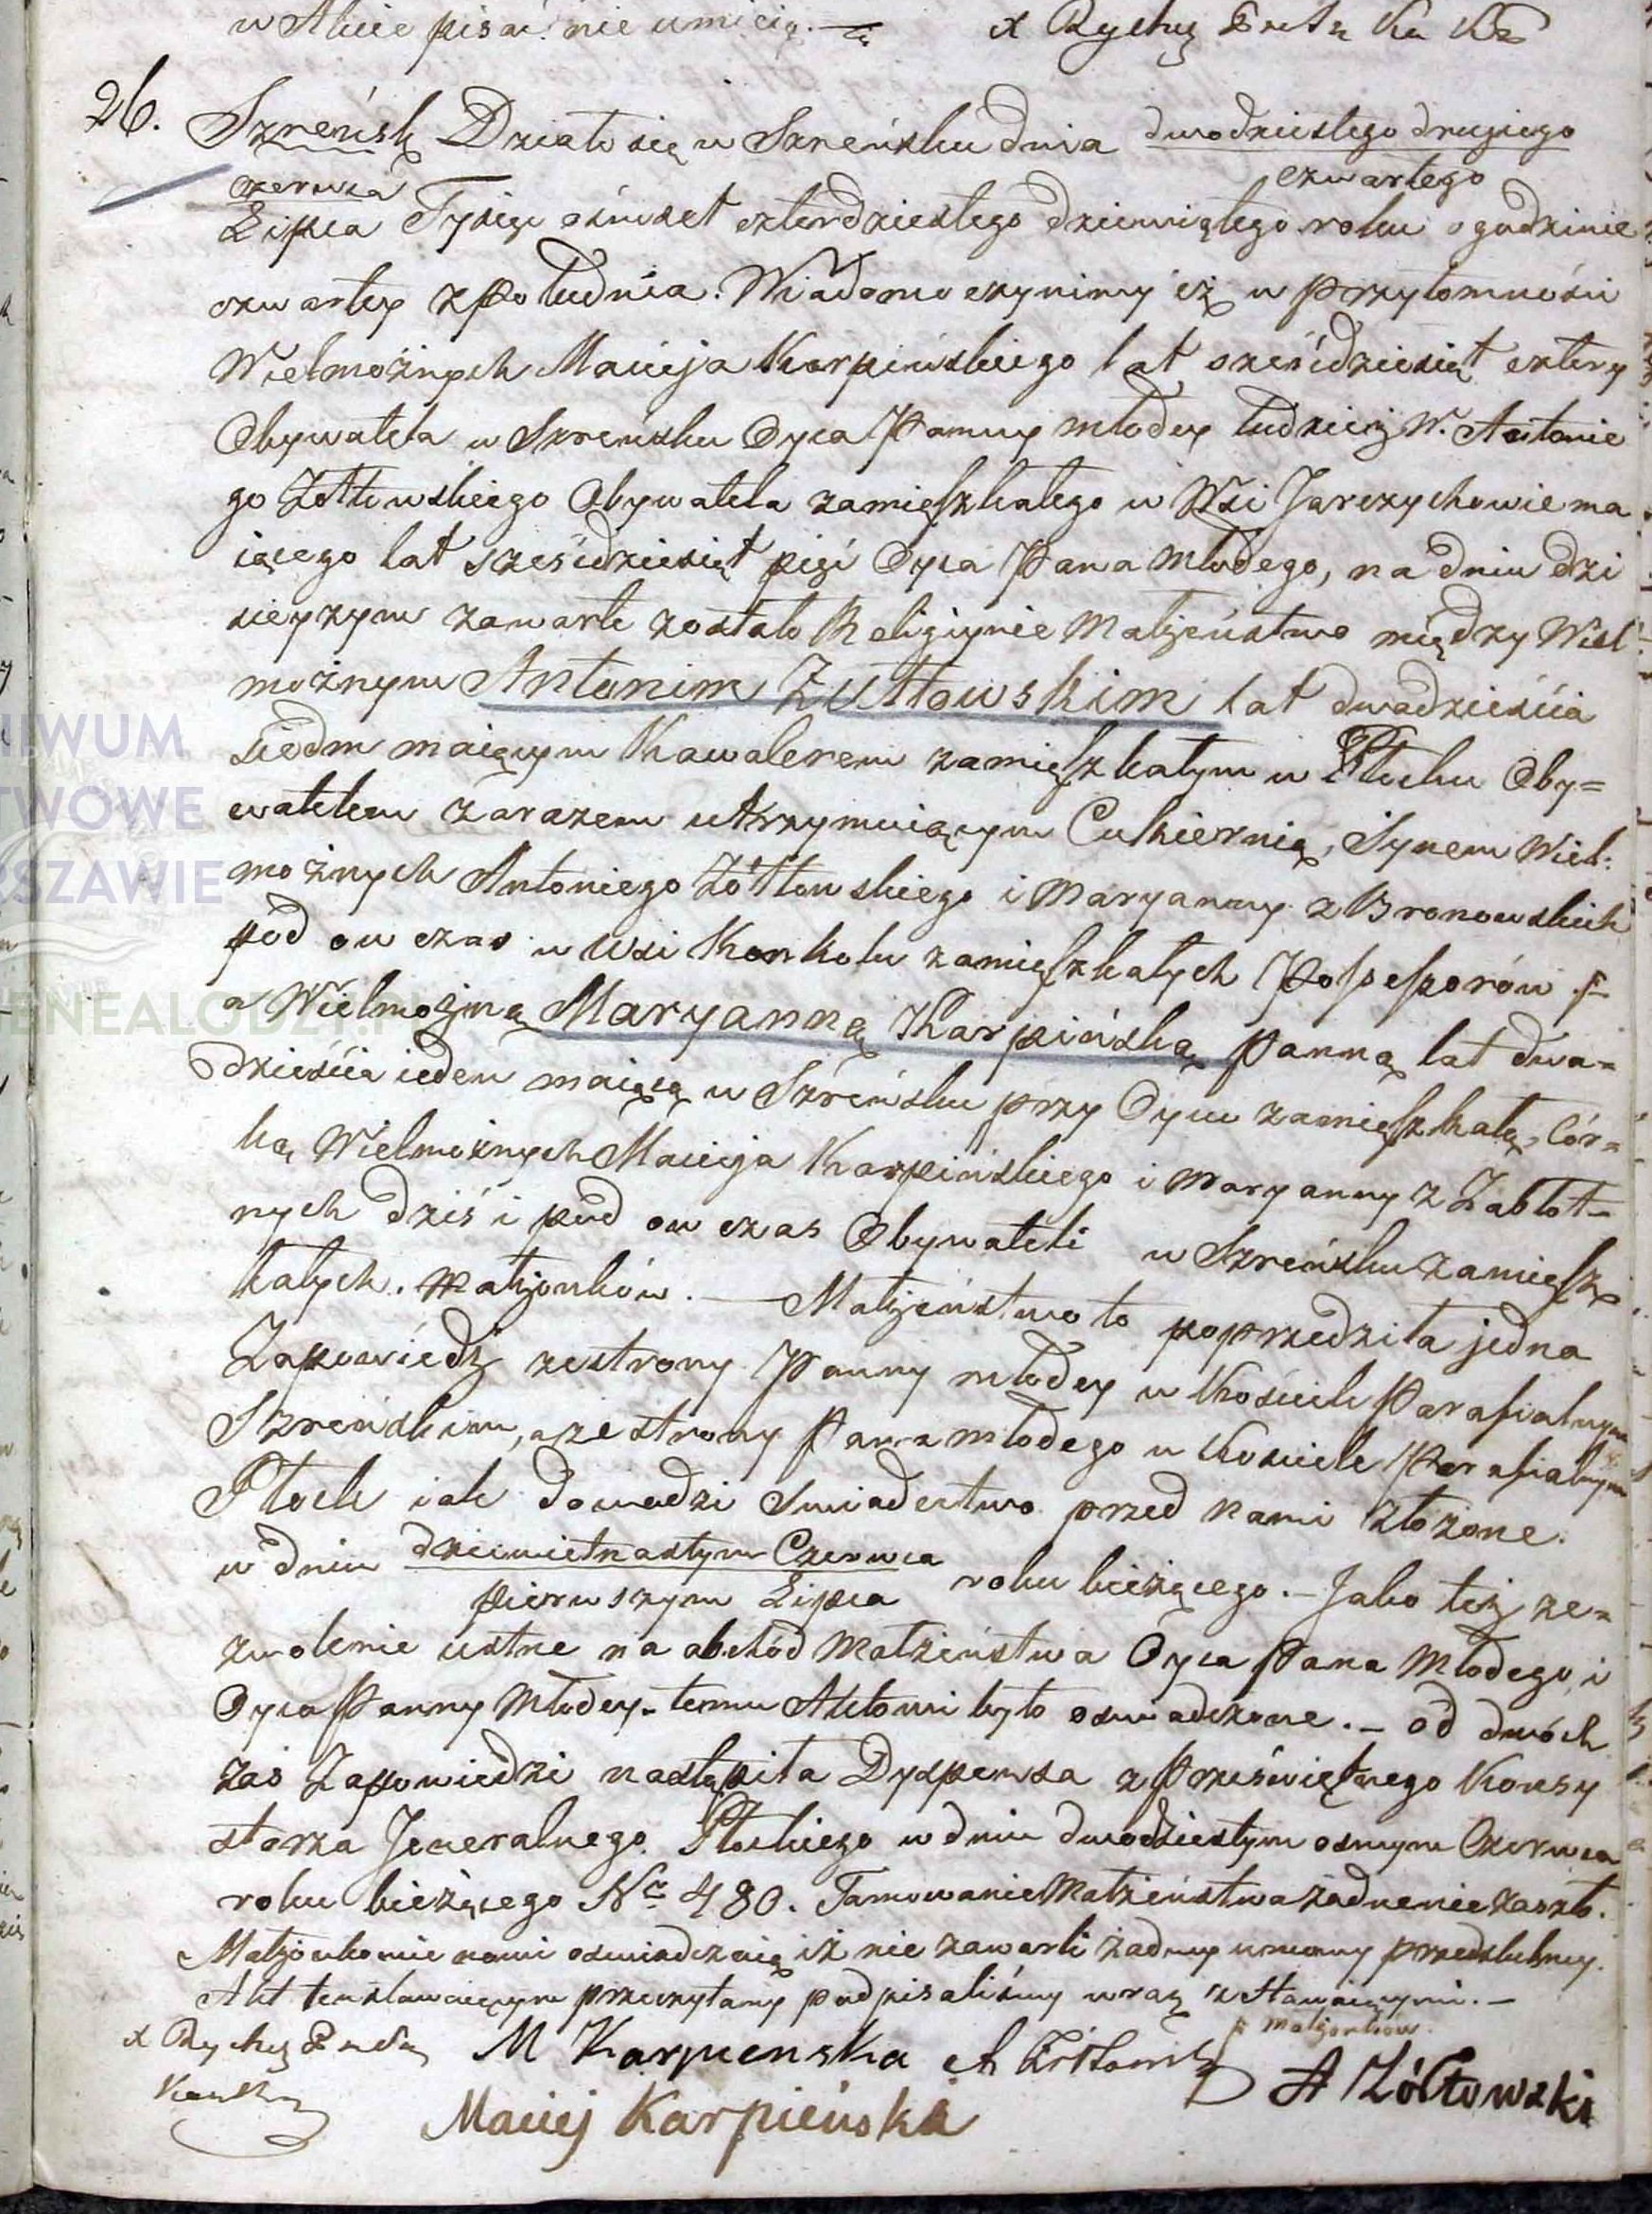 w Akcie pisać nie umieią.
26. Szreńsk Działo się w Szreńsku dnia dwudziestego drugiego
czerwca czwartego
Lipca Tysiąc ośmset czterdziestego dziewiątego roku o godzinie
czwartey z południa. Wiadomo czynimy iż w przytomności
Wielmożnych Macieja Karpińskiego lat sześćdziesiąt cztery
Obywatela w Szreńsku Oyca Panny młodey tudzież W. Antonie
go Żołtowskiego Obywatela zamięszkałego w Wsi Jarczychowie ma
iącego lat sześćdziesiąt pięć Oyca Pana młodego, na dniu dzi
sieyszym zawarte zostało Religiynie Małżeństwo między Wiel
możnym Antonim Żułtowskim lat dwadzieścia
siedm maiącym Kawalerem zamięszkałym w Płocku Oby=
watelem zarazem utrzymuiącym Cukiernią, Synem Wiel:
możnych Antoniego Żółtowskiego i Maryanny z Bronowskich
pod ow czas w Wsi Konkolu zamięszkałych Possessorów
a Wielmożną Maryanną Karpińską Panną lat dwa=
dzieścia ieden maiącą w Szreńsku przy Oycu zamięszkałą, Cór=
ką Wielmożnych Macieja Karpińskiego i Maryanny z Zabłot=
nych dziś i pod ow czas Obywateli w Szreńsku zamięsz
kałych. Małżonków. — Małżeństwo to poprzedziła jedna
Zapowiedź ze strony Panny młodey w Kościele Parafialnym
Szreńskim, a ze strony Pana młodego w Kościele Parafialnym
Płock iak dowodzi Swiadectwo przed nami złożone.
w dniu dziewietnastym Czerwca roku bieżącego. — Jako też ze=
pierwszym Lipca
zwolenie ustne na obchód Małżeństwa Oyca Pana Młodego i
Oyca Panny Młodey temu Aktowi było oświadczone. — od dwóch
zaś Zapowiedzi nastąpiła Dyspensa z Przeświętnego Konsy
storza Jeneralnego Płockiego w dniu dwudziestym osmym Czerwca
roku bieżącego Nr 480. Tamowanie Małżeństwa żadne nie zaszło.
Małżonkowie nowi oświadczaią iż nie zawarli żadney umowy przedślubney.
Akt ten stawaiącym przeczytany podpisaliśmy wraz z Stawaiącymi. —
Małżonków.
M Karpienska A Żółtowski A Żółtowski
Maciej Karpieński